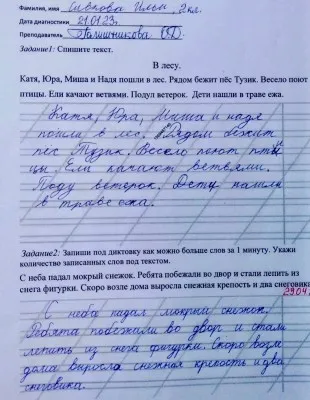 Фамилия, имя Сивкова Илы 2кл.
Дата диагностики 21.01.23г.
Преподаватель Палишникова
Задание1: Спишите текст.
В лесу.
Катя, Юра, Миша и Надя пошли в лес. Рядом бежит пёс Тузик. Весело поют
птицы. Ели качают ветвями. Подул ветерок. Дети нашли в траве ежа.
Катя, Юра, Миша и надя
пошли в лес. Рядом бежит
пёс Тузик. Весело поют пти
цы. Ели качают ветвями.
Поду ветерок. Дети нашли
в траве ежа.
Задание2: Запиши под диктовку как можно больше слов за 1 минуту. Укажи
количество записанных слов под текстом.
С неба падал мокрый снежок. Ребята побежали во двор и стали лепить из
снега фигурки. Скоро возле дома выросла снежная крепость и два снеговика
29.04
С неба падал мокрый снежок.
Ребята побежали во двор и стали
лепить из снега фигурки. Скоро возле
дома выросла снежная крепость и два
снеговика.